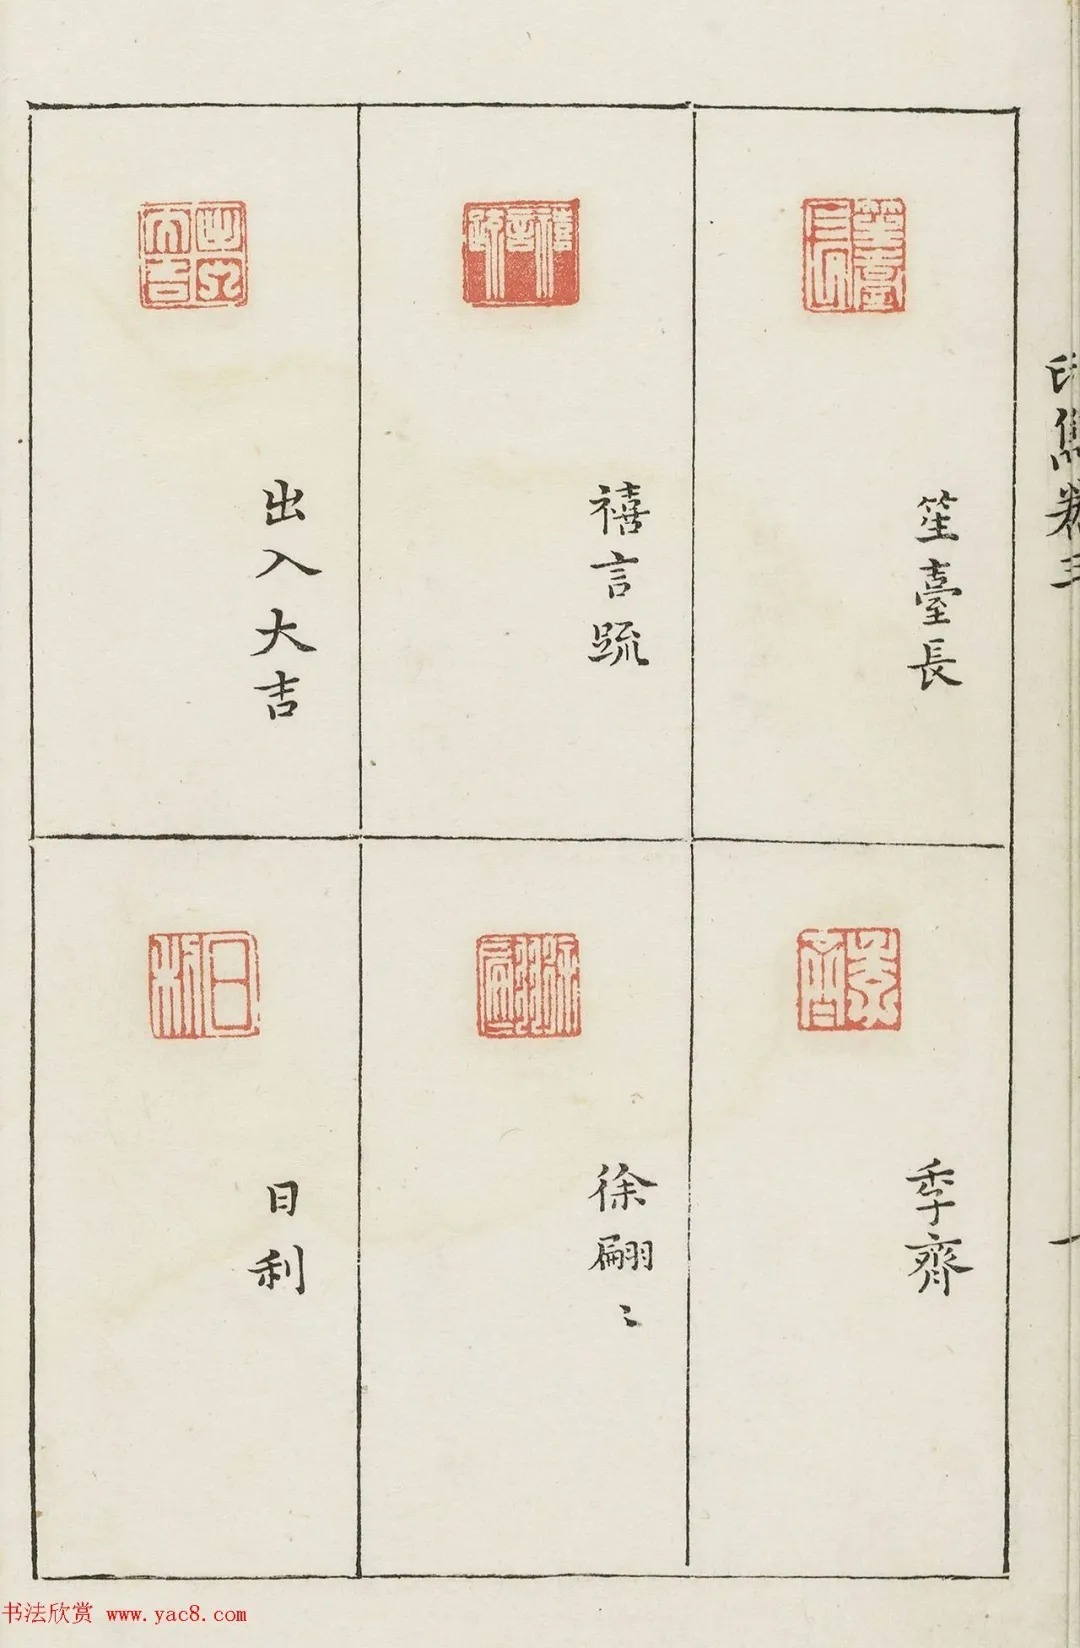 印雋卷三
一
笙臺長
禧言䟽
出入大吉
季齊
徐翩〻
日利
书法欣赏 www.yac8.com